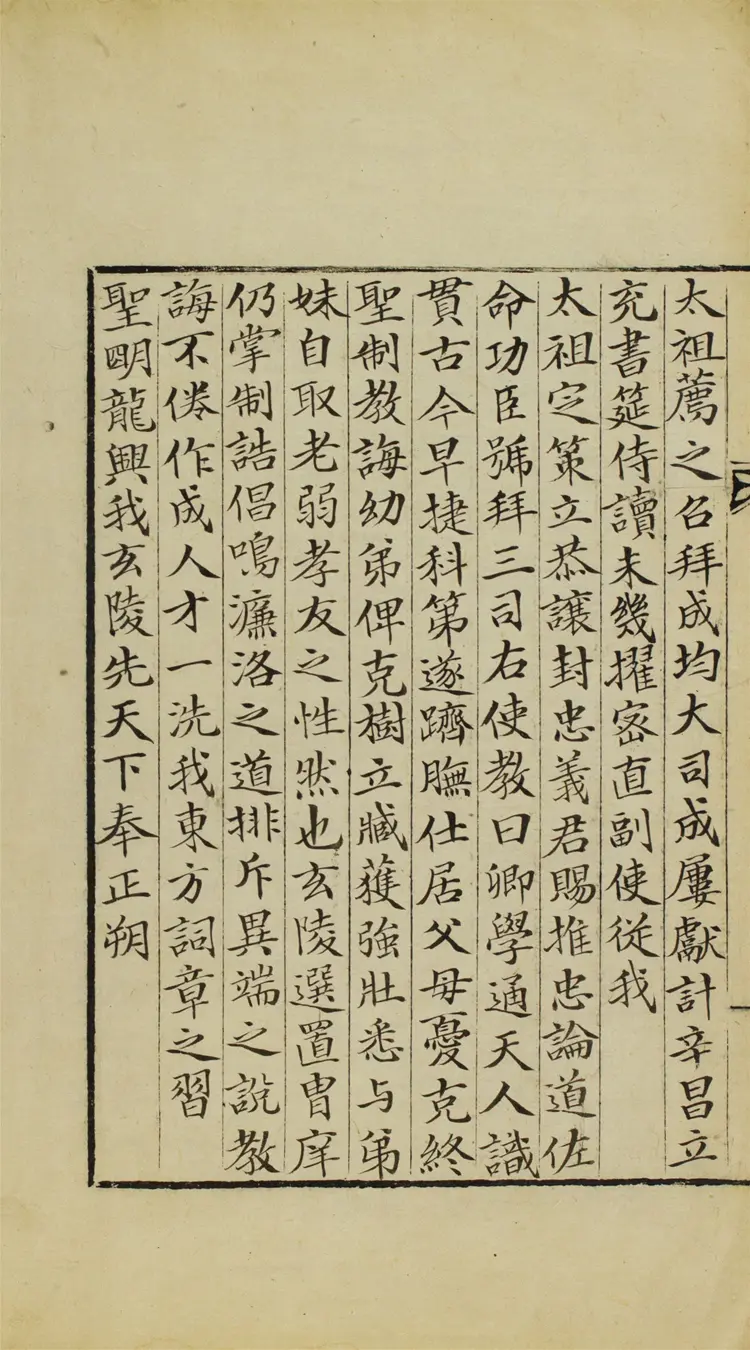 太祖薦之召拜成均大司成屢獻計辛昌立
充書筵侍讀未幾擢密直副使從我
太祖定策立恭讓封忠義君賜推忠論道佐
命功臣號拜三司右使教曰卿學通天人識
貫古今早捷科第遂躋膴仕居父母憂克終
聖制教誨幼弟俾克樹立臧獲強壯悉与弟
妹自取老弱孝友之性然也玄陵選置胄庠
仍掌制誥倡鳴濂洛之道排斥異端之說教
誨不倦作成人才一洗我東方詞章之習
聖明龍興我玄陵先天下奉正朔